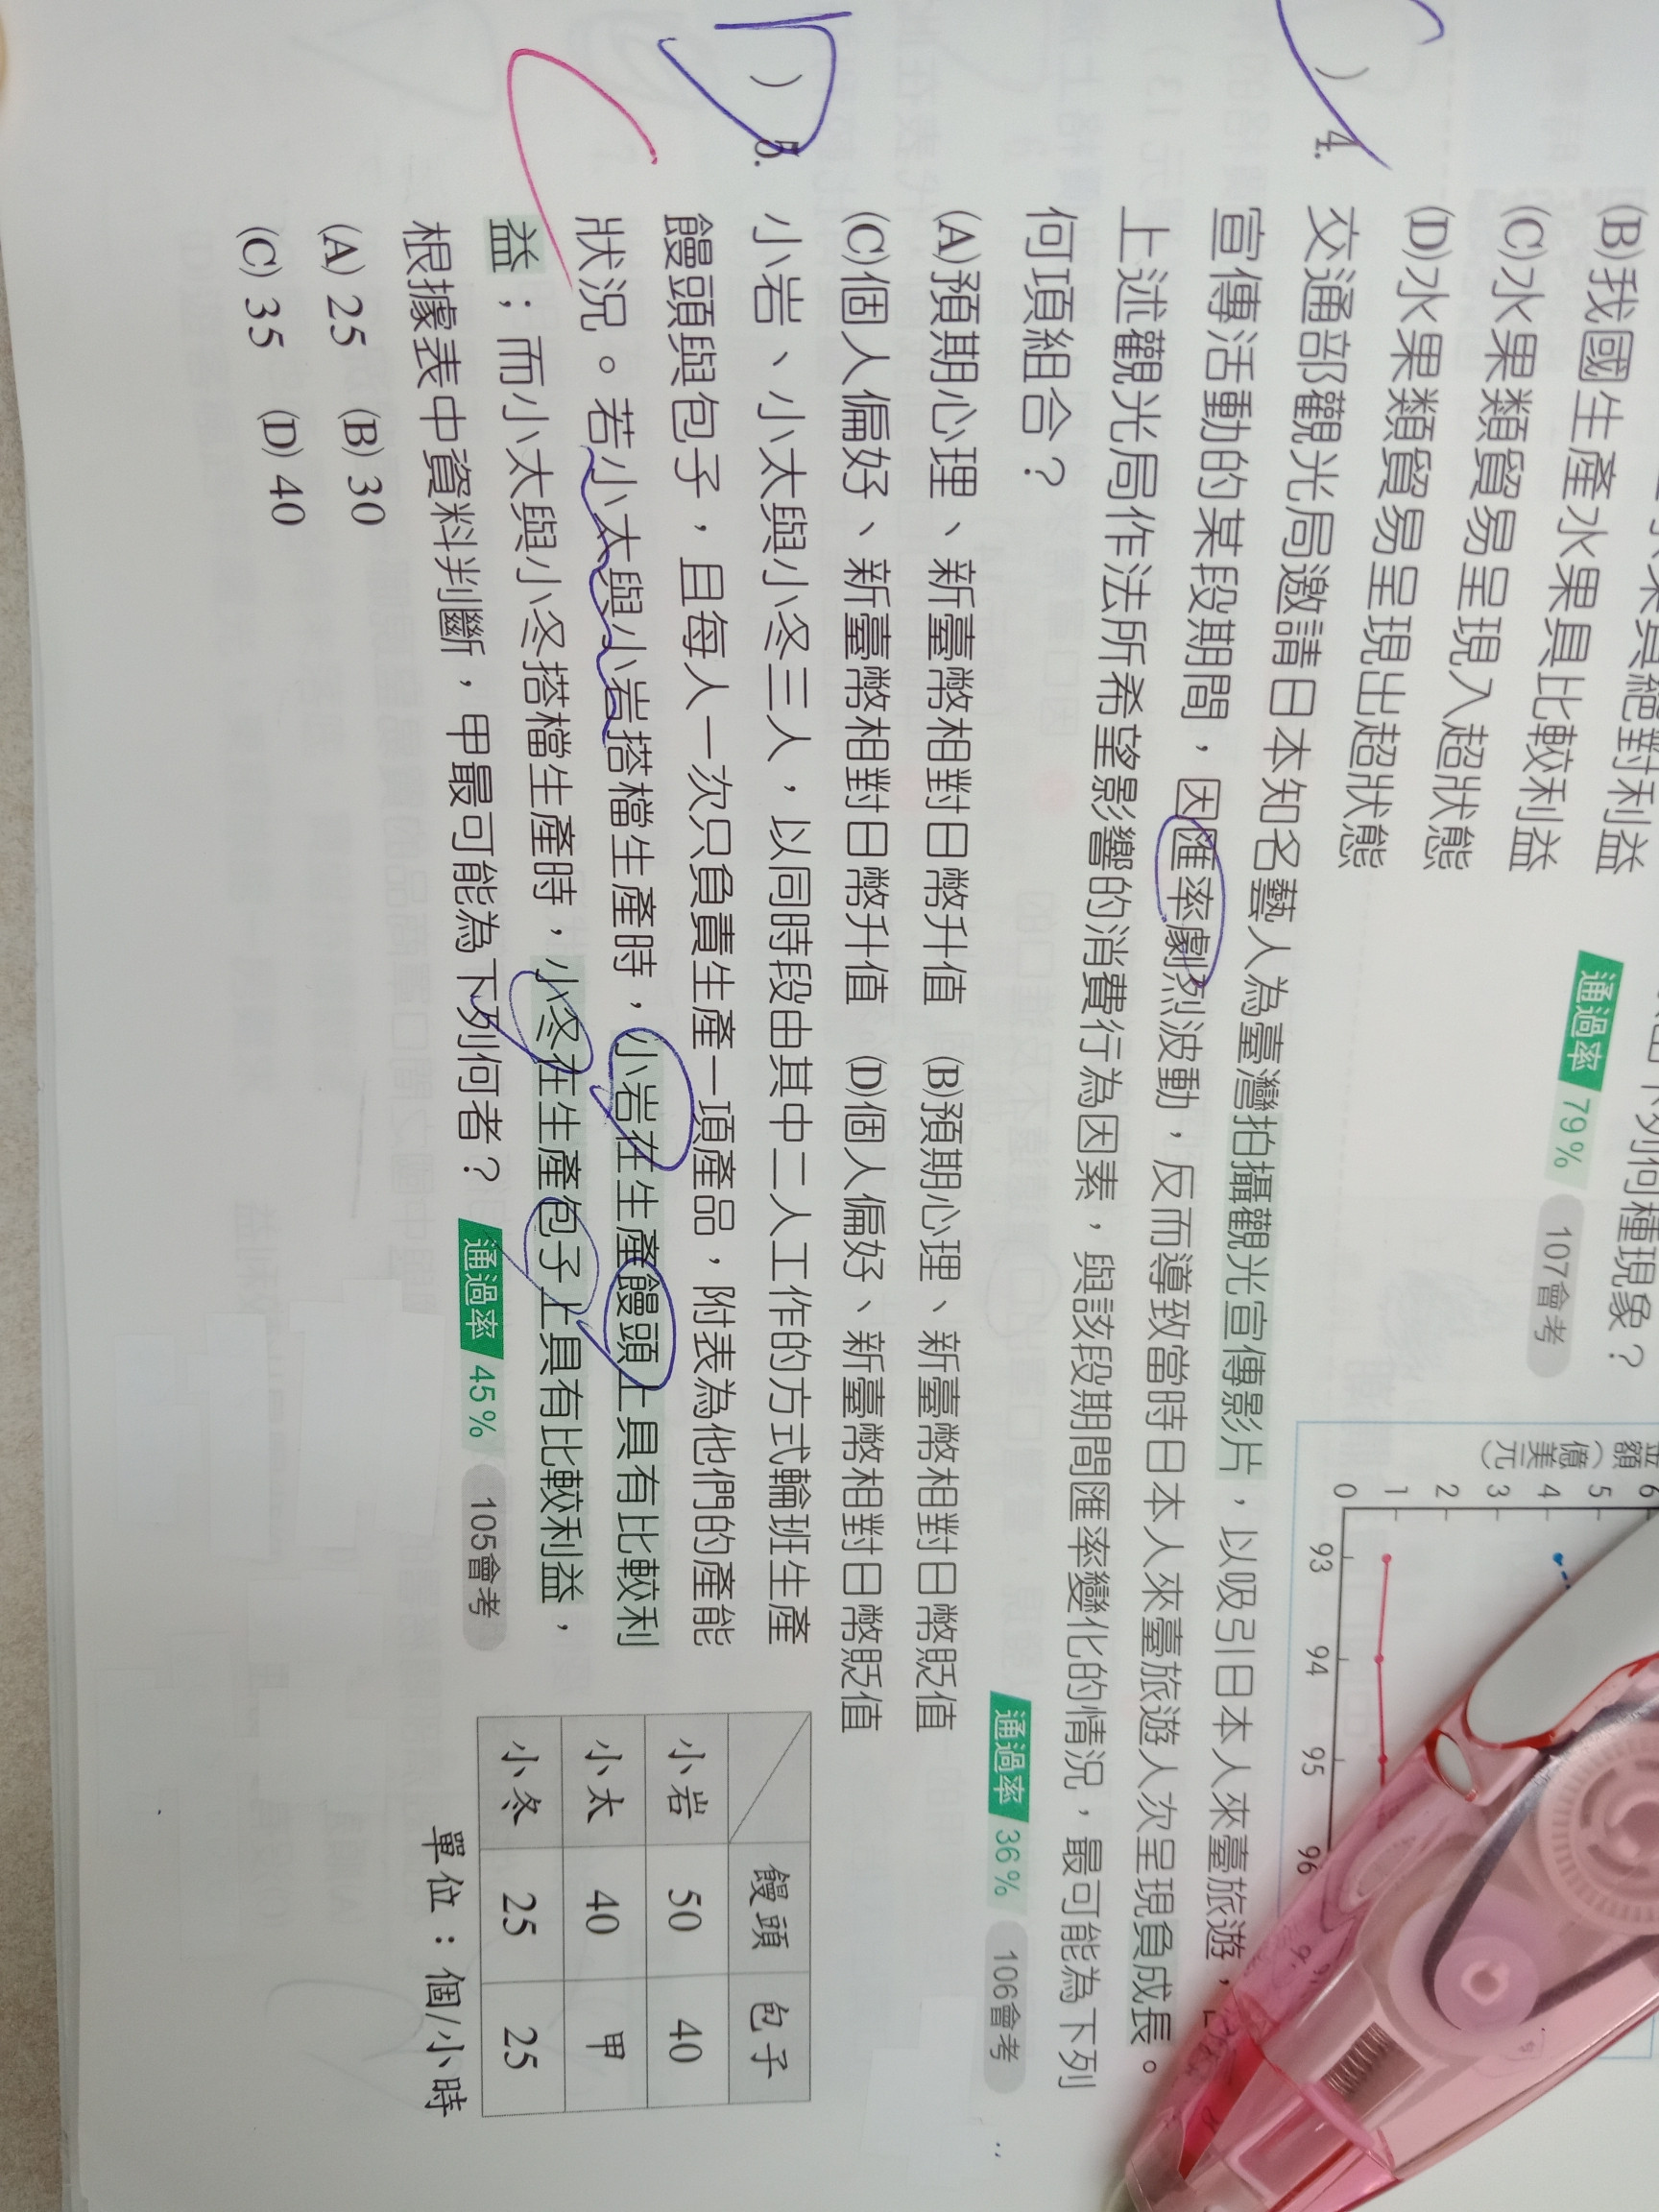 (B)我國生產水果具絕對利益
(C)水果類貿易呈現入超狀態
(C)水果類貿易呈現入超狀態
(D)水果類貿易呈現出超狀態
下列何種現象？
通過率 79% 107會考
6
5
4
3
2
1
0
額（億美元）
93 94 95 96
( ) 4. 交通部觀光局邀請日本知名藝人為臺灣拍攝觀光宣傳影片，以吸引日本人來臺旅遊，
宣傳活動的某段期間，因匯率劇烈波動，反而導致當時日本人來臺旅遊人次呈現負成長。
上述觀光局作法所希望影響的消費行為因素，與該段期間匯率變化的情況，最可能為下列
何項組合？
通過率 36% 106會考
(A)預期心理、新臺幣相對日幣升值 (B)預期心理、新臺幣相對日幣貶值
(C)個人偏好、新臺幣相對日幣升值 (D)個人偏好、新臺幣相對日幣貶值
D
( ) 5. 小岩、小太與小冬三人，以同時段由其中二人工作的方式輪班生產
饅頭與包子，且每人一次只負責生產一項產品，附表為他們的產能
狀況。若小太與小岩搭檔生產時，小岩在生產饅頭上具有比較利
益；而小太與小冬搭檔生產時，小冬在生產包子上具有比較利益，
根據表中資料判斷，甲最可能為下列何者？ 通過率 45% 105會考
(A) 25 (B) 30
(C) 35 (D) 40
饅頭 包子
小岩 50 40
小太 40 甲
小冬 25 25
單位：個/小時